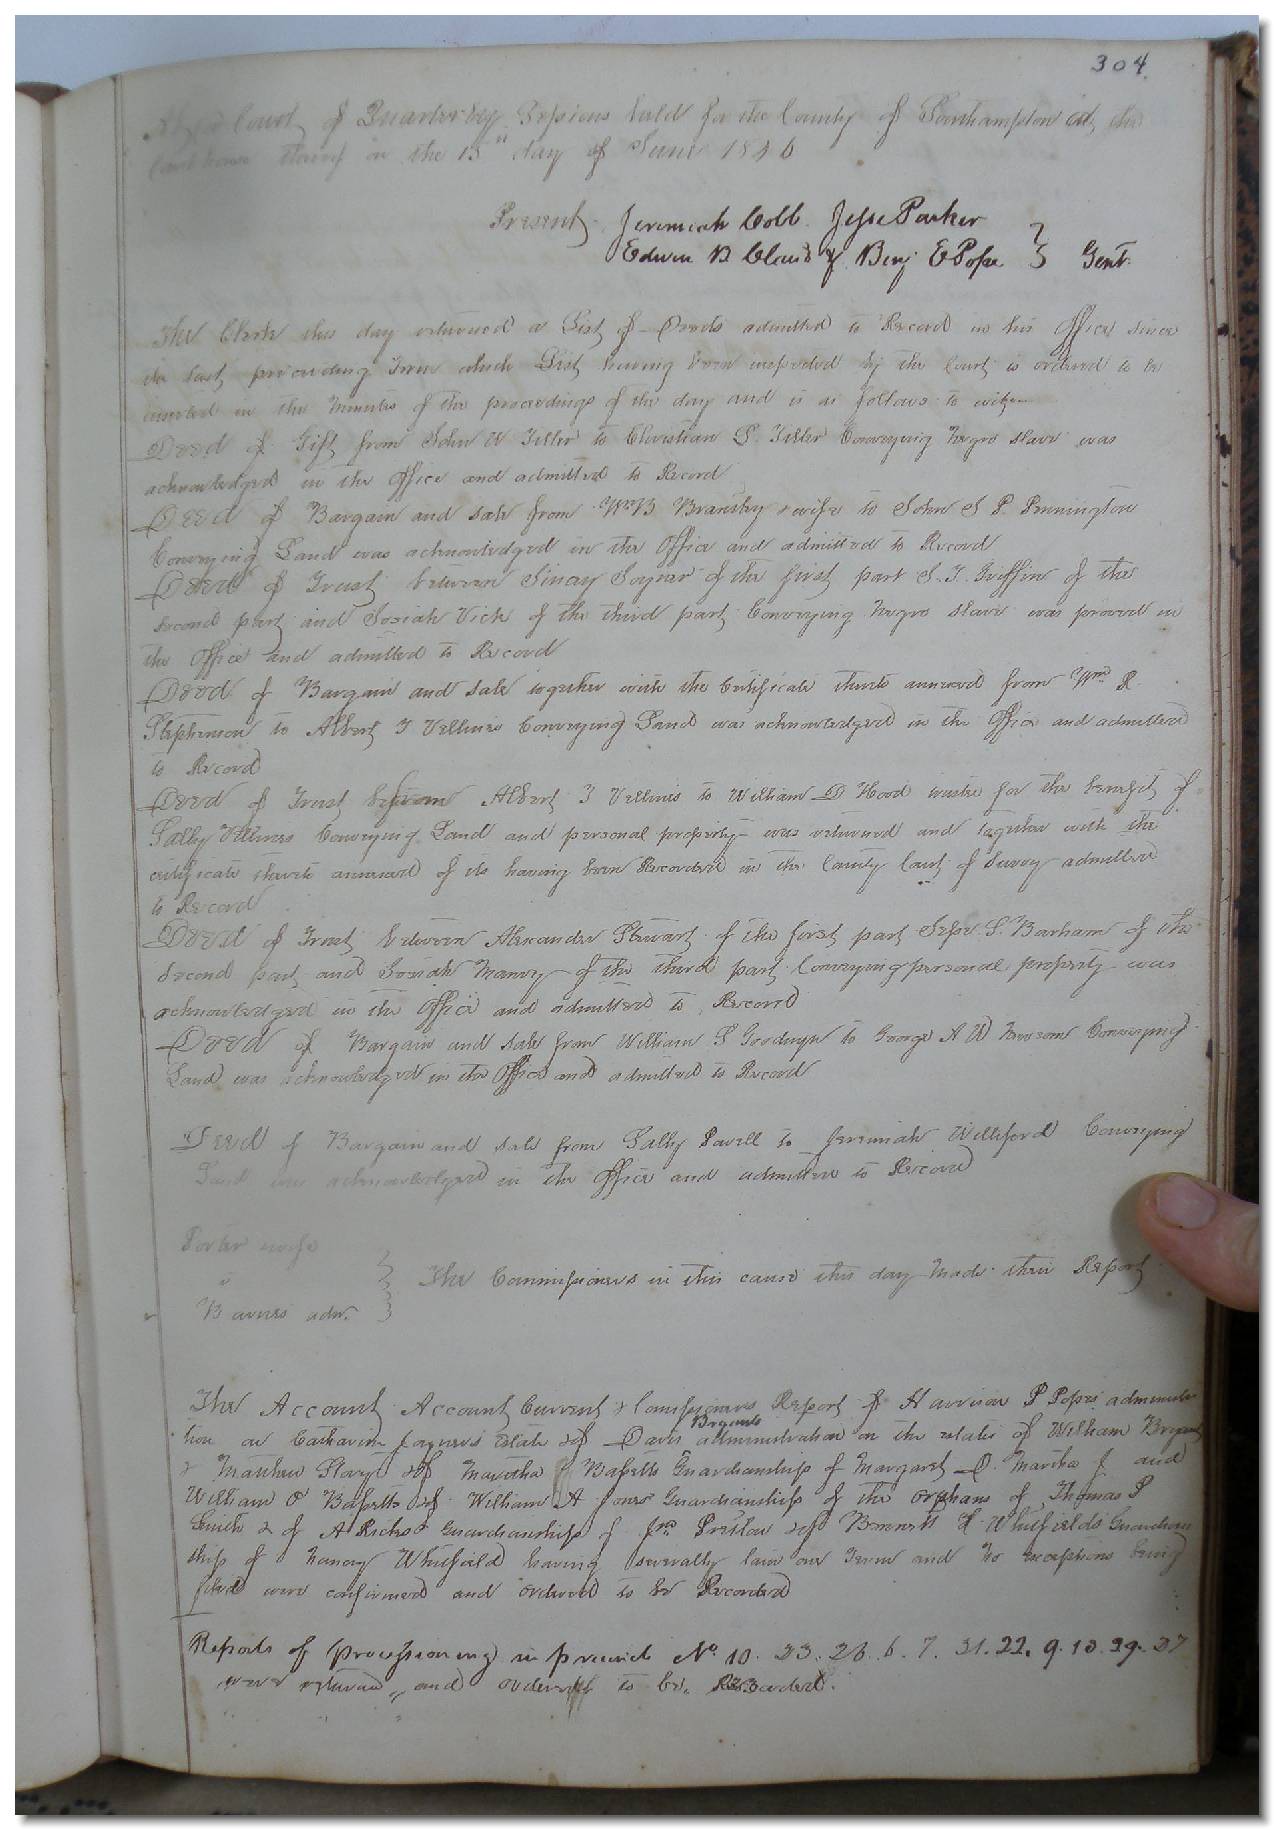 304.
At a Court of Quarterly Sessions held for the County of Southampton at the
Court house thereof on the 15th day of June 1846
Present Jeremiah Cobb Jesse Parker
Edwin B Claud & Benj E Pope } Gent.
The Clerk this day returned a List of Deeds admitted to Record in his Office since
the last preceeding Term which List having been inspected by the Court is ordered to be
inserted in the Minutes of the proceedings of the day and is as follows to wit
Deed of Gift from John W Tiller to Christian S. Tiller Conveying Negro slave was
acknowledged in the Office and admitted to Record
Deed of Bargain and sale from Wm B Brantley & wife to John S P. Pennington
Conveying Land was acknowledged in the Office and admitted to Record
Deed of Trust between Joyner of the first part S. J. Griffin of the
second part and Josiah Vick of the third part Conveying Negro slave was proved in
the Office and admitted to Record
Deed of Bargain and sale together with the Certificate thereto annexed from Wm R.
Stephenson to Albert J Vellines Conveying Land was acknowledged in the Office and admitted
to Record
Deed of Trust from Albert J Vellines to William D Hood trustee for the benefit of
Sally Vellines Conveying Land and personal property was returned and together with the
certificate thereto annexed of its having been Recorded in the County Court of Surry admitted
to Record
Deed of Trust between Alexander Stewart of the first part S. Barham of the
second part and Josiah Nanny of the third part Conveying personal property was
acknowledged in the Office and admitted to Record
Deed of Bargain and sale from William S Goodwyn to George A W Newsom Conveying
Land was acknowledged in the Office and admitted to Record
Deed of Bargain and sale from Sally to Jeremiah Williford Conveying
Land was acknowledged in the Office and admitted to Record
Porter & wife
v
adm. } The Commissioners in this cause this day made their Report
The Account Account Current & Commissioners Report of Harrison P Popes administra
tion on Catharine Joyners estate & of Davis Bryants administration on the estates of William Bryant
& Matthew & of Martha J Bassetts Guardianship of Margaret D. Martha J and
William O Bassetts & of William A Jones Guardianship of the orphans of Thomas P
& of A Ricks Guardianship of Jno & of Bennett H Whitfields Guardian
ship of Nancy Whitfield having severally lain one Term and no exceptions being
filed were confirmed and ordered to be Recorded
Reports of processioning in precinct No 10. 23. 26. 6. 7. 31. 22. 9. 13. 29. 27
were returned and ordered to be Recorded.